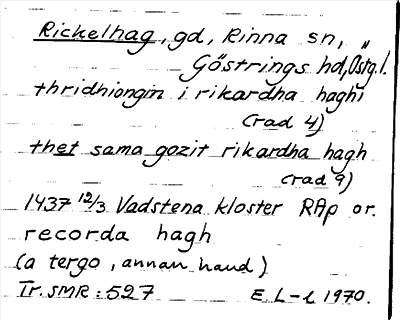 Rickelhag, gd, Rinna sn, „
Göstrings hd, Östg.l.
thridhiongin i rikardha haghi
(rad 4)
thet sama gozit rikardha hagh
(rad 9)
1437 12/3 Vadstena kloster RAp or.
recorda hagh
(a tergo, annan hand)
Tr. SMR: 527 E. L-l 1970.